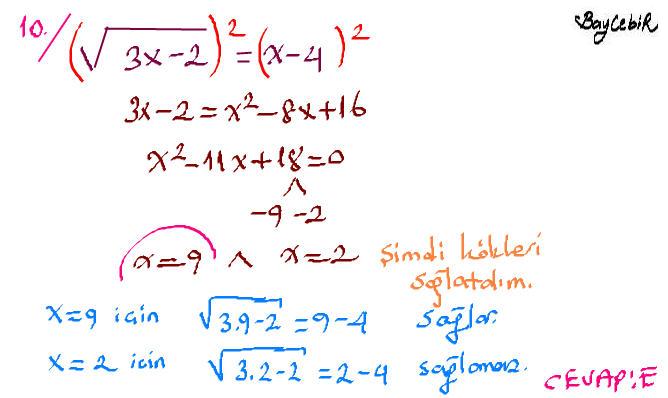 BayCebiR
10./ (√3x-2)² = (x-4)²
3x-2 = x²-8x+16
x²-11x+18=0
-9 -2
x=9 ∧ x=2 Şimdi kökleri
sağlatalım.
x=9 için √3.9-2 = 9-4 sağlar.
x=2 için √3.2-2 = 2-4 sağlamaz.
CEVAP:E